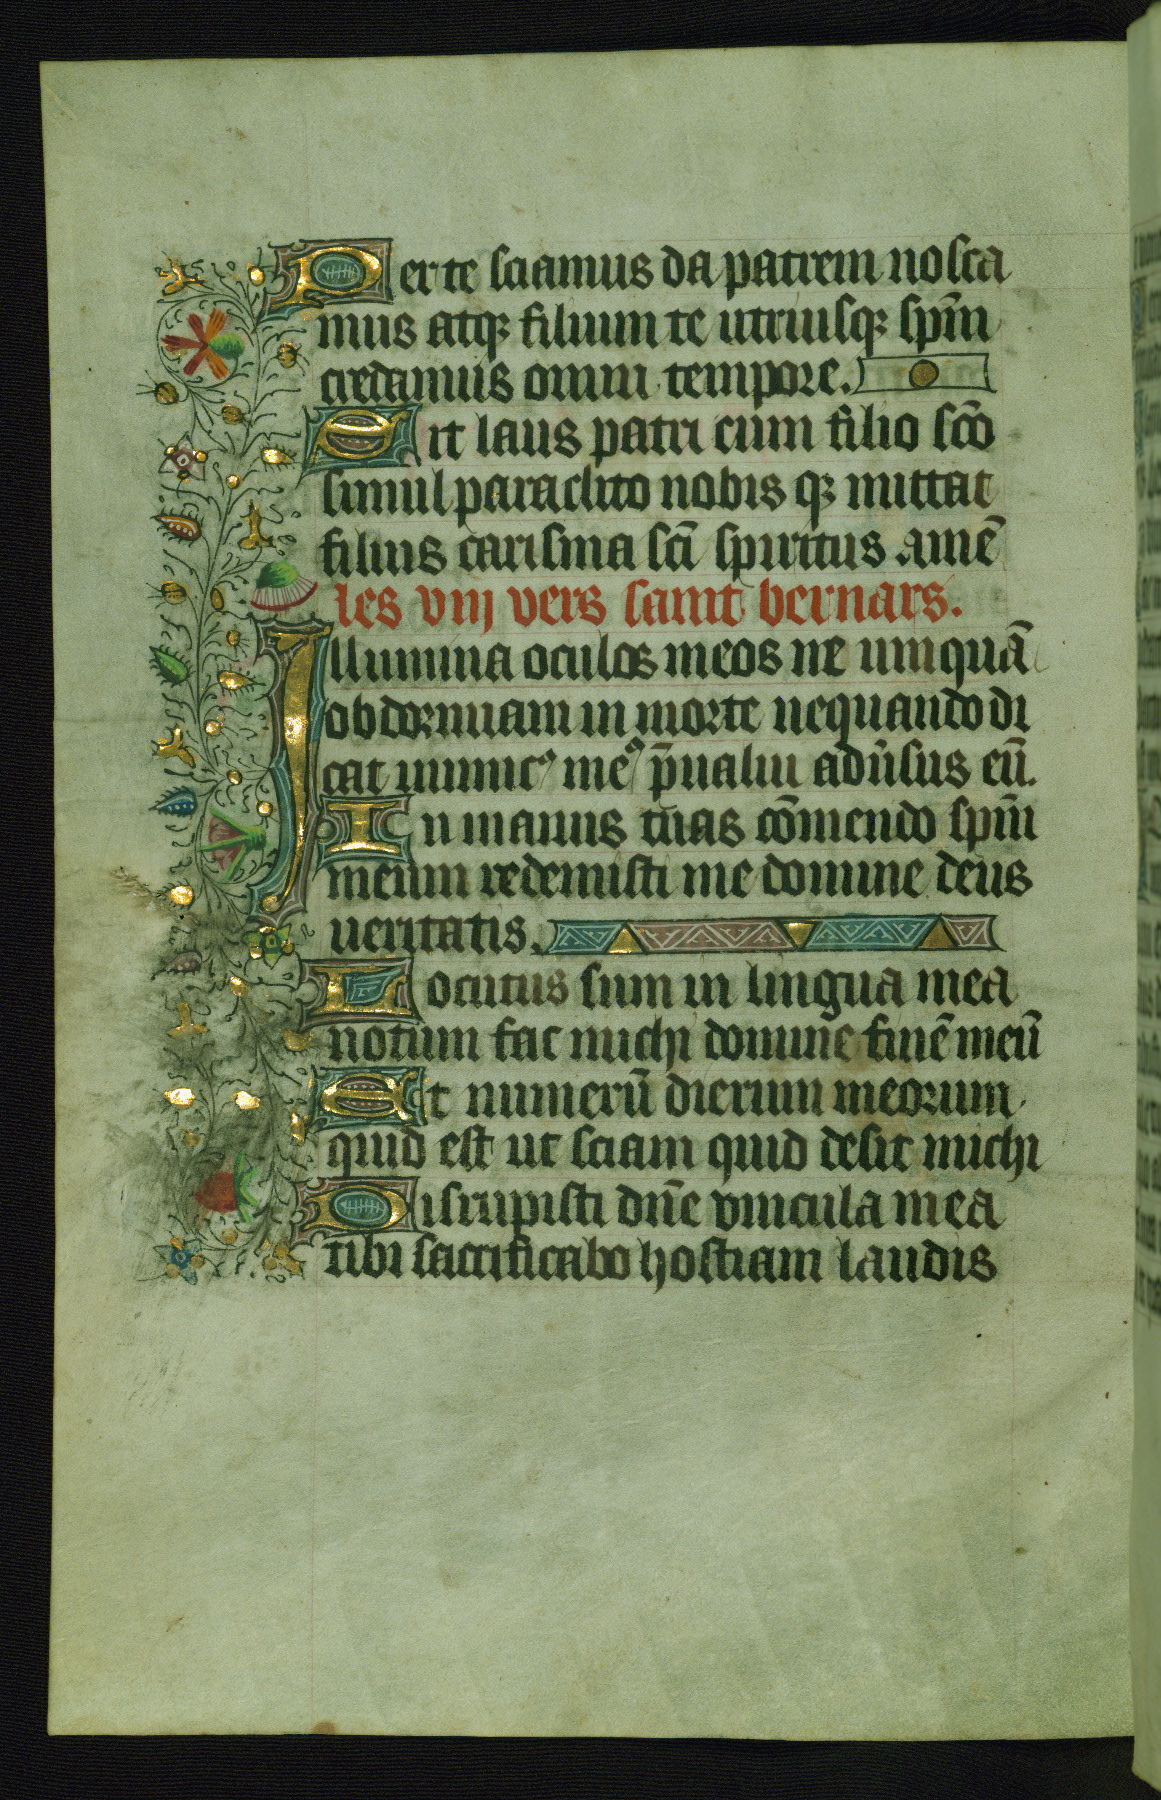 Per te sciamus da patrem nosca
mus atqꝫ filium te utriusqꝫ sp̄m
credamus omni tempore.
Sit laus patri cum filio sc̄o
simul paraclito nobis qꝫ mittat
filius carisma sc̄i spiritus .amē
les viij vers saint bernars.
Illumina oculos meos ne umquā
obdormiam in morte nequando di
cat inimicꝰ meꝰ p̄ualui adūsus eū.
In manus tuas cōmendo sp̄m
meum redemisti me domine deus
ueritatis.
Locutus sum in lingua mea
notum fac michi domine finē meū
Et numerū dierum meorum
quid est ut sciam quid desit michi
Disrupisti dn̄e vincula mea
tibi sacrificabo hostiam laudis